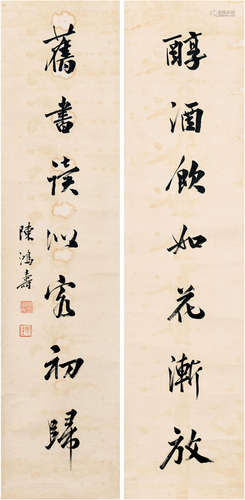 醇酒飲如花漸放
舊書讀似客初歸
陳鴻壽